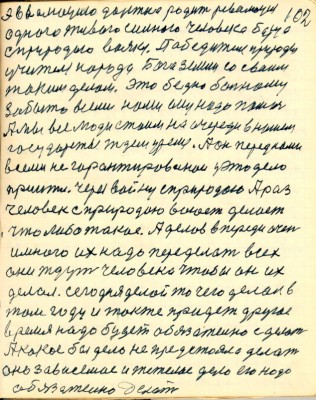 102
Эволюцию должна родит революция
одного живого сильного человека будто
с природою войну. Победител природы
учител народа Бог земли со своим
таким делом. Это бедно больному
забыто всеми нами ему надо помоч
А мы все люди стоим на очереди в нашем
государстве ждем врему. А он перед нами
всеми не гарантированой это дело
принести. Через войну с природою А раз
человек с природою воюет делает
что либо такое. А делов впереди очен
имного их надо переделат всех
они ждут человека чтобы он их
делал. сегодня делой то чего делал в
том году и также придет другое
время надо будет обязательно сделат
А какое бы дело не предстояло делат
оно зависемае и тежелое дело его надо
обязательно делат